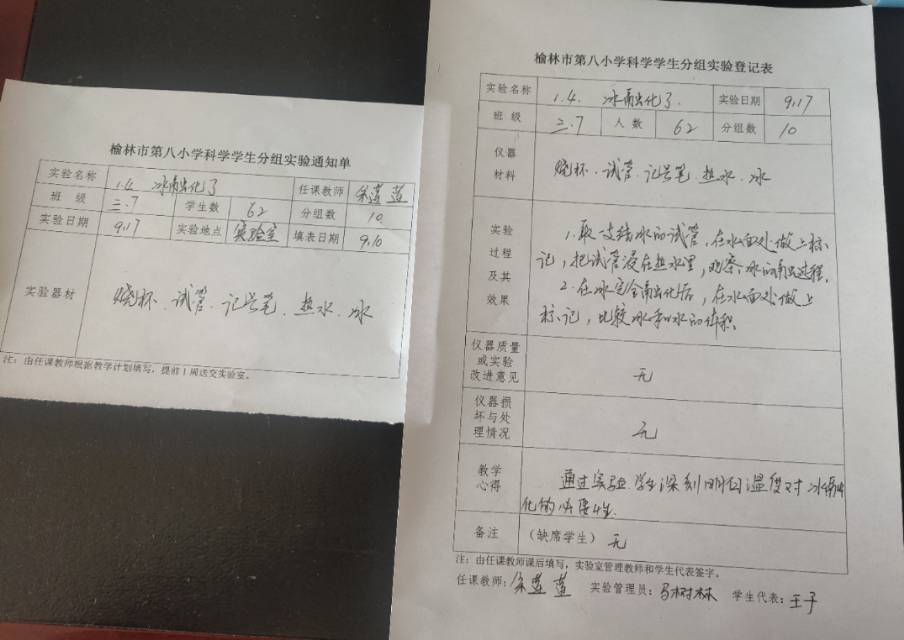 榆林市第八小学科学学生分组实验通知单
实验名称 1.4. 冰融化了 任课教师
班 级 三.7 学生数 62 分组数 10
实验日期 9.17 实验地点 实验室 填表日期 9.10
实验器材 烧杯．试管．记号笔．热水．冰
注：由任课教师根据教学计划填写，提前1周送交实验室。
榆林市第八小学科学学生分组实验登记表
实验名称 1.4. 冰融化了. 实验日期 9.17
班 级 三.7 人 数 62 分组数 10
仪器
材料
烧杯．试管．记号笔．热水．冰
实验
过程
及其
效果
1.取一支结冰的试管，在冰面处做上标
记，把试管浸在热水里，观察冰的融化过程.
2.在冰完全融化后，在水面处做上
标记，比较冰和水的体积.
仪器质量
或实验
改进意见
无
仪器损
坏与处
理情况
无
教学
心得
通过实验.学生深刻明白温度对冰融
化的必要性.
备注 （缺席学生） 无
注：由任课教师课后填写，实验室管理教师和学生代表签字。
任课教师： 实验管理员：马树林 学生代表：王子